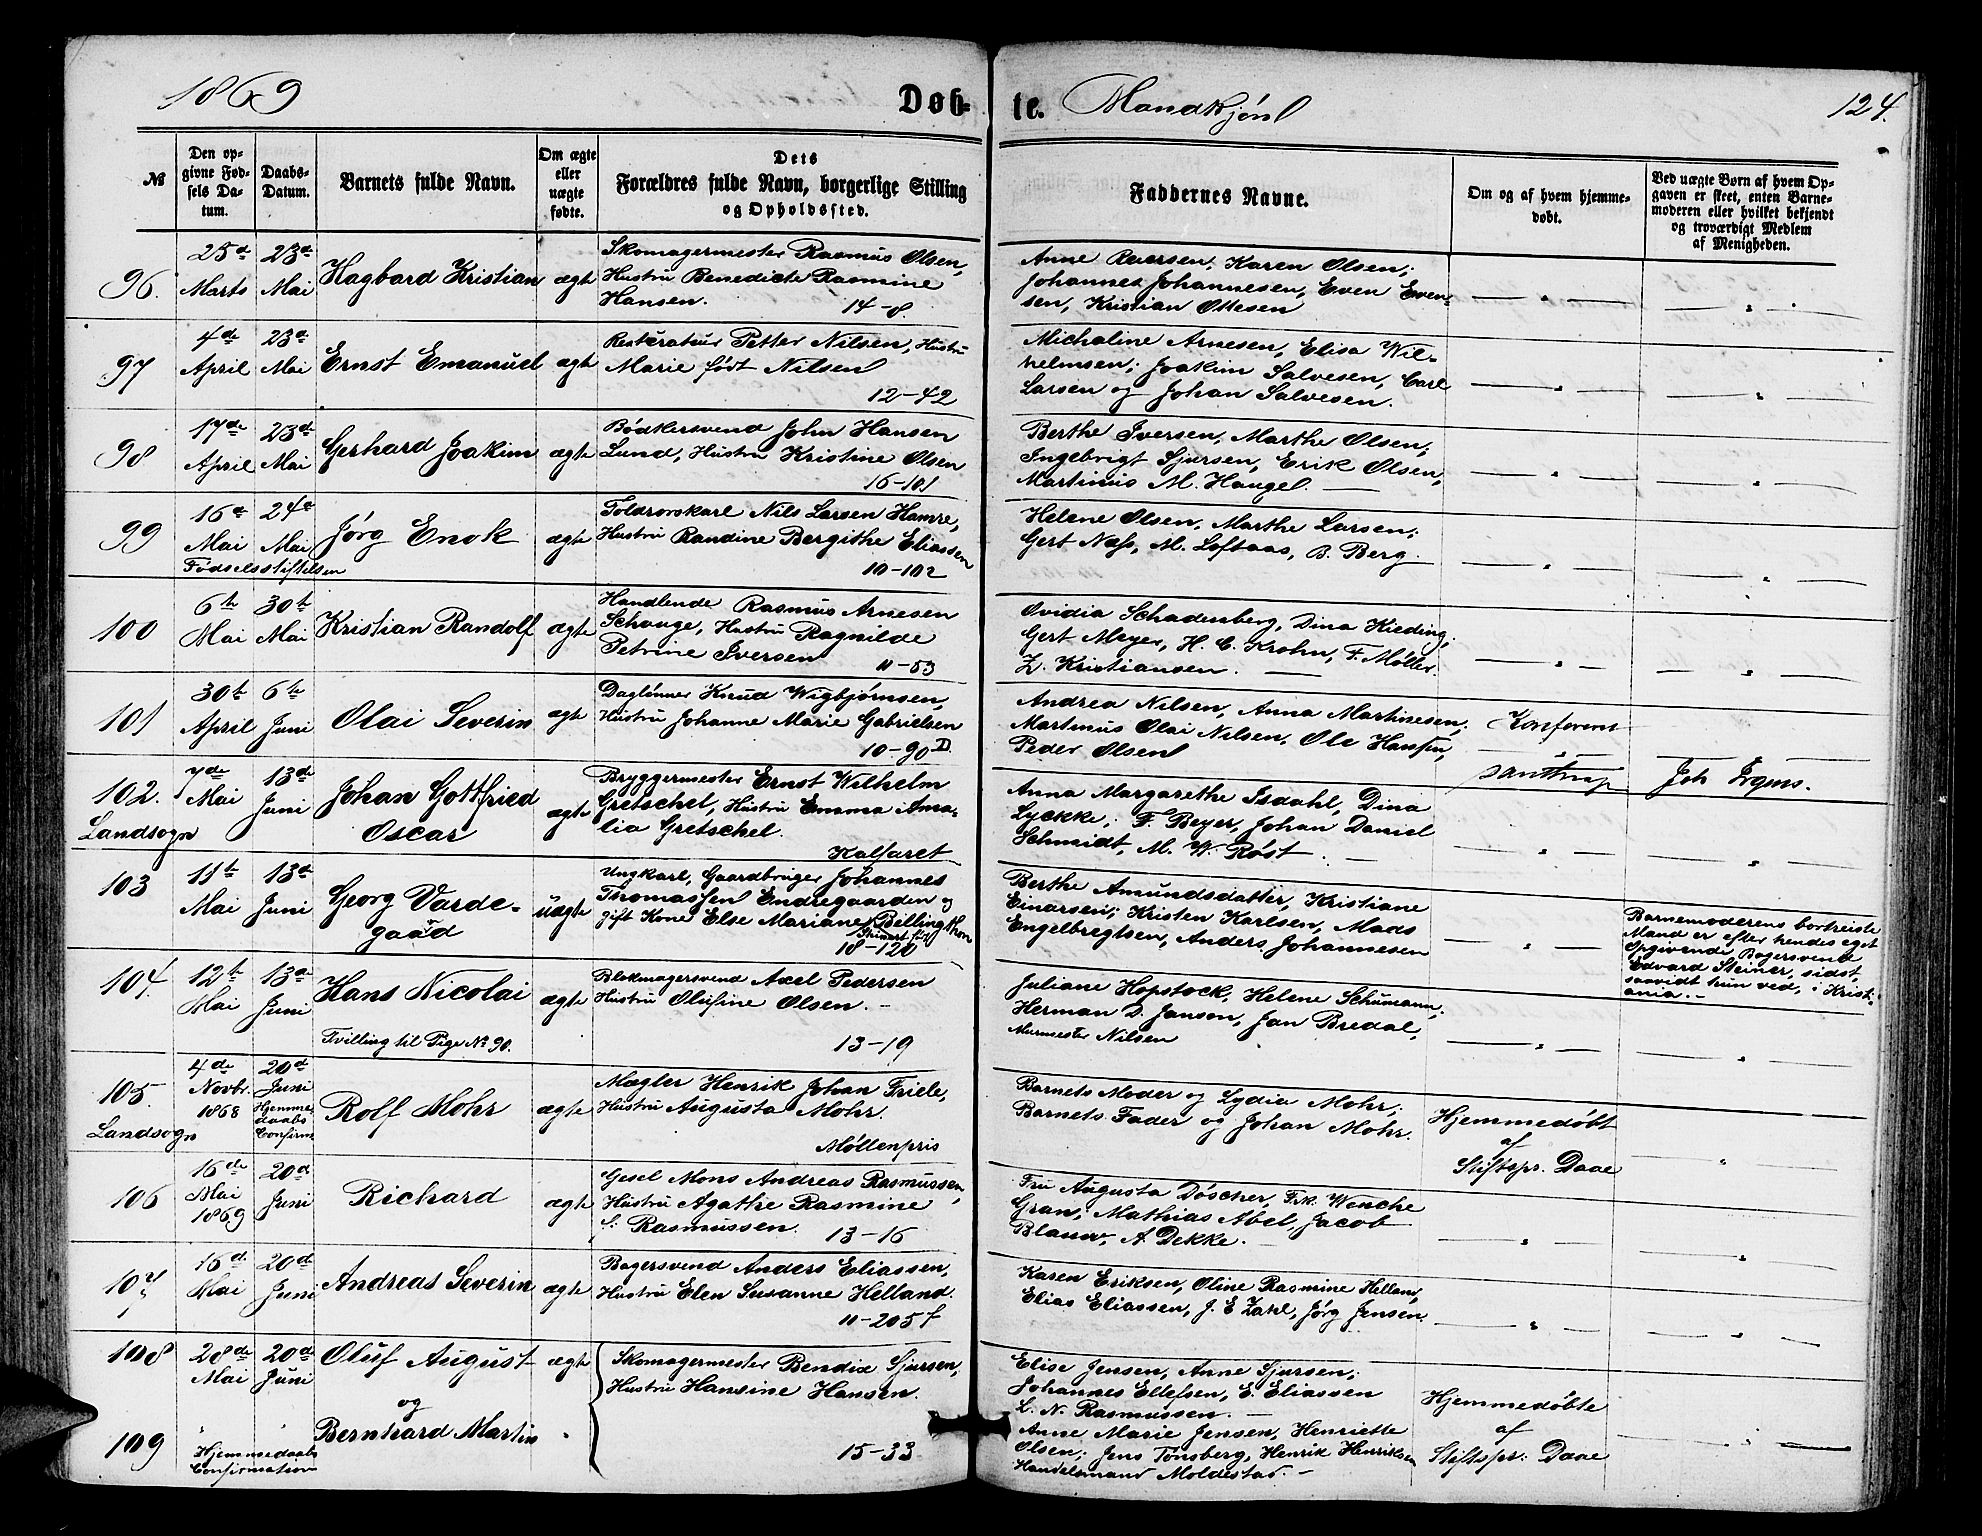 1869
Døb-
te.
Mandkjøn
124.
№
Den op-
givne Fød-
sels Da-
tum.
Daabs-
Datum.
Barnets fulde Navn.
Om ægte
eller
uægte
fødte.
Dets
Forældres fulde Navn, borgerlige Stilling
og Opholdssted.
Faddernes Navne.
Om og af hvem hjemme-
døbt.
Ved uægte Børn af hvem Op-
gaven er skeet, enten Barne-
moderen eller hvilket bekjendt
og troværdigt Medlem
af Menigheden.
96.
25de
Marts
23de
Mai
Hagbard Kristian
ægte
Skomagermester Rasmus Olsen,
Hustru Benedicte Rasmine
Hansen.
14-8.
Anne Karen Olsen;
Johannes Johannesen, Even Even-
sen, Kristian Ottesen
97
4de
April
23de
Mai
Ernst Emanuel
ægte
Restauratur Petter Nilsen, Hustru
Marie født Nilsen
12-42
Michaline Arnesen, Elisa Wil-
helmsen; Joakim Salvesen, Carl
Larsen og Johan Salvesen.
98
17de
April
23de
Mai
Gerhard Joakim
ægte
Bødkersvend John Hansen
Lund, Hustru Kristine Olsen
16-101
Berthe Iversen, Marthe Olsen;
Ingebrigt Sjursen, Erik Olsen,
Martinus M. Haugel.
99
16de
Mai
24de
Mai
Fødselsstiftelsen
Jørg Enok
ægte
Toldrorskarl Nils Larsen Hamre,
Hustru Randine Bergithe Eliassen
10-102
Helene Olsen, Marthe Larsen;
Gert Næss, M. Loftaas, B. Berg.
100
6te
Mai
30te
Mai
Kristian Randolf
ægte
Handlende Rasmus Arnesen
Schauge, Hustru Ragnilde
Petrine Iversen
11-53
Ovidia Schadenberg, Dina Kieding;
Gert Meyer, H. C. Krohn, F. Møller
Z. Kristiansen.
101
30te
April
6te
Juni
Olai Severin
ægte
Daglønner Knud Wigbjørnsen,
Hustru Johanne Marie Gabrielsen
10-90 D.
Andrea Nilsen, Anna Martinesen;
Martinus Olai Nilsen, Ole Hansen,
Peder Olsen
Konfereret
Joh Irgens.
102.
Landsogn
7de
Mai
13de
Juni
Johan Gottfried
Oscar
ægte
Bryggermester Ernst Wilhelm
Gretschel, Hustru Emma Ama-
lia Gretschel.
Kalfaret
Anna Margarethe Isdahl, Dina
Lyckke; F. Beyer, Johan Daniel
Schmidt, M. W. Røst.
103
11te
Mai
13de
Juni
Georg Varde-
gaard
uægte
Ungkarl, Gaardbruger Johannes
Thomassen Endregaarden og
gift Kone Else Mariane Bellingthon
18-120
Berthe Amundsdatter, Kristiane
Einarsen; Kristen Karlsen, Mads
Engelbregtsen, Anders Johannesen
Barnemoderens bortreiste
Mand er efter hendes eget
Opgivende Bagersvend
Edvard Steiner, sidst,
saavidt hun ved, i Kristi-
ania.
104.
12te
Mai
13de
Juni
Hans Nicolai
Tvilling til Pige No 90.
ægte
Blokmagersvend Axel Pedersen
Hustru Olufine Olsen.
13-19
Juliane Hopstock, Helene Schumann,
Herman D. Janson, Jan Bredal,
Murmester Nilsen
105.
Landsogn
4de
Novbr.
1868
20de
Juni
Hjemme-
daabs
Confirm
Rolf Mohr
ægte
Mægler Henrik Johan Friele,
Hustru Augusta Mohr.
Møllenpris
Barnets Moder og Lydia Mohr;
Barnets Fader og Johan Mohr.
Hjemmedøbt
af
Stiftspr. Daae
106
16de
Mai
1869
20de
Juni
Richard
ægte
Gesel Mons Andreas Rasmussen,
Hustru Agathe Rasmine
f: Rasmussen.
13-16
Fru Augusta Döscher, Frk. Wenche
Gran, Mathias Abel, Jacob
Blauw, A. Dekke.
107
16de
Mai
20de
Juni
Andreas Severin
ægte
Bagersvend Anders Eliassen,
Hustru Elen Susanne Helland.
11-205 f
Karen Eriksen, Oline Rasmine Helland,
Elias Eliassen, J. E Zahl, Jørg Jensen.
108
28de
Mai
20de
Juni
Oluf August
ægte
Skomagermester Bendix Sjursen,
Hustru Hansine Hansen.
Elise Jensen, Anne Sjursen;
Johannes Ellefsen, E. Eliassen
L. N. Rasmussen.
Hjemmedøbte
af
Stiftspr: Daae
og
109
Hjemmedaabs
Confirmation
Bernhard Martin
15-33
Anne Marie Jensen, Henriette
Olsen; Jens Tönsberg, Henrik Henriksen
Handelsmand Moldestad.